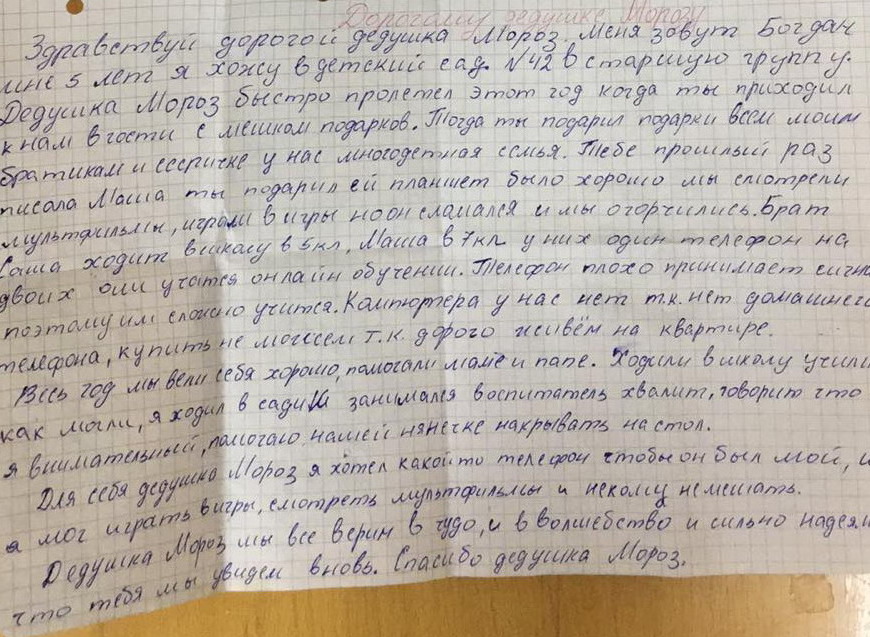 Дорогому дедушке Морозу
Здравствуй дорогой дедушка Мороз. Меня зовут Богдан
мне 5 лет я хожу в детский сад. №42 в старшую группу.
Дедушка Мороз быстро пролетел этот год когда ты приходил
к нам в гости с мешком подарков. Тогда ты подарил подарки всем моим
братикам и сестричке у нас многодетная семья. Тебе прошлый раз
писала Маша ты подарил ей планшет было хорошо мы смотрели
мультфильмы, играли в игры но он сламался и мы огорчились. Брат
Саша ходит в школу в 5кл, Маша в 7кл у них один телефон на
двоих они учатся онлайн обучении. Телефон плохо принимает сигна
поэтому им сложно учится. Компютера у нас нет т.к. нет домашнего
телефона, купить не можем т.к. дорого живём на квартире.
Весь год мы вели себя хорошо, помогали маме и папе. Ходили в школу учили
как могли, я ходил в садик занимался воспитатель хвалит, говорит что
я внимательный, помогаю нашей нянечке накрывать на стол.
Для себя дедушка Мороз я хотел какой то телефон чтобы он был мой, и
я мог играть в игры, смотреть мультфильмы и некому немешать.
Дедушка Мороз мы все верим в чудо, и в волшебство и сильно надеям
что тебя мы увидем вновь. Спасибо дедушка Мороз.